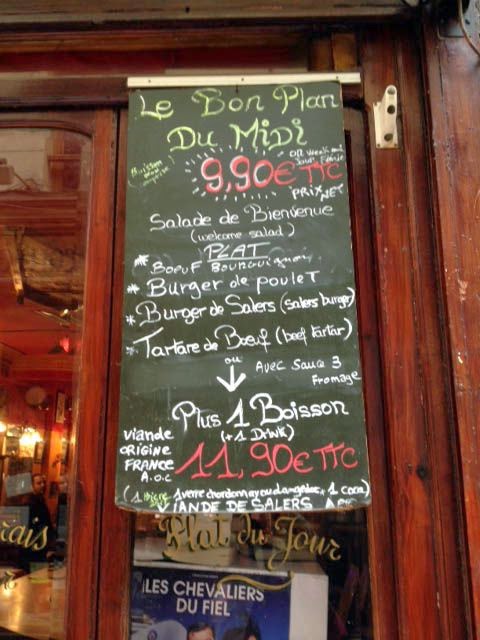 Le Bon Plan
Du Midi
9,90€ TTC
PRIX NET
Salade de Bienvenue
(welcome salad)
PLAT
* Boeuf Bourguignon
* Burger de poulet
* Burger de Salers (Salers burger)
* Tartare de Bœuf (beef tartar)
ou
Avec Sauce 3
Fromage
Plus 1 Boisson
(+1 Drink)
VIANDE
ORIGINE
FRANCE
A.O.C
11,90€ TTC
1 verre chardonnay ou 1 coca)
VIANDE DE SALERS
Plat du Jour
LES CHEVALIERS
DU FIEL